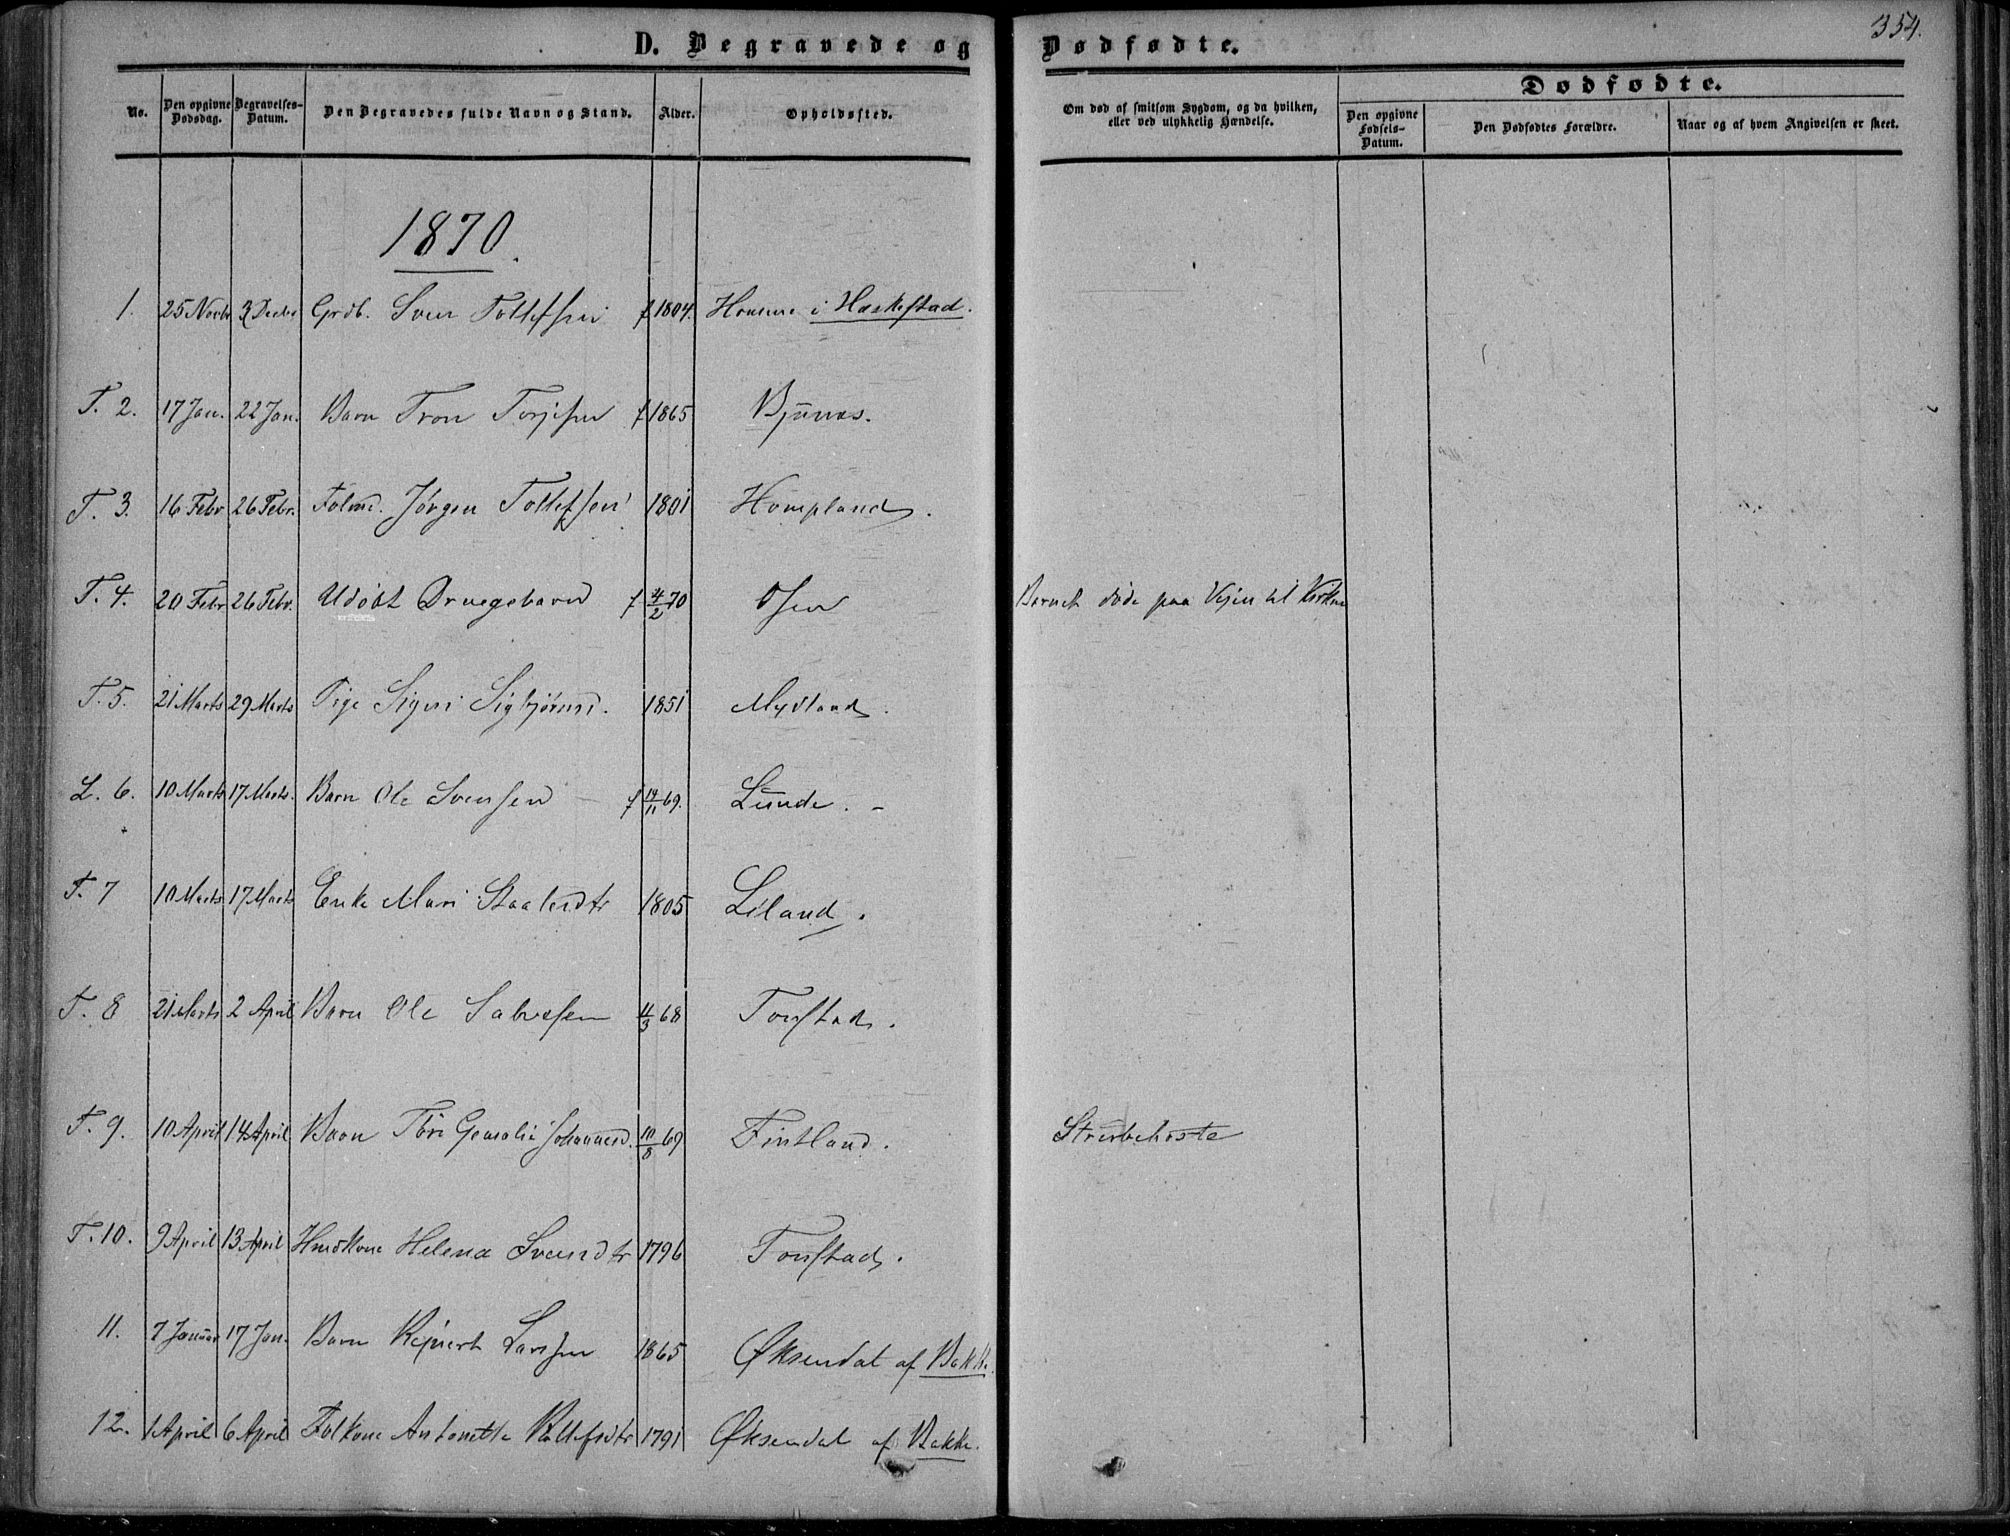 354.
D. Begravede og Dødfødte.
No. Den opgivne Dødsdag. Begravelses-Datum. Den Begravedes fulde Navn og Stand. Alder. Opholdssted. Om død af smitsom Sygdom, og da hvilken, eller ved ulykkelig Hændelse. Dødfødte. Den opgivne Fødsels-Datum. Den Dødfødtes Forældre. Naar og af hvem Angivelsen er skeet.
1870.
1. 25 Novbr 3 Decbr Grdb. Sven Tollefsen f 1804. i Hæskestad.
T. 2. 17 Jan. 22 Jan. Barn Tron Terjesen f 1865 Bjunes.
T. 3. 16 Febr 26 Febr. Folmd. Jørgen Tollefsen 1801 Hompland.
T. 4. 20 Febr 26 Febr. Udøbt Drengebarn f 4/2 70 Osen Barnet døde paa Vejen til Kirken
T. 5. 21 Marts 29 Marts Pige Sigri Sigbjørnsd. 1851 Mydland.
L. 6. 10 Marts 17 Marts. Barn Ole Svensen f 14/11 69. Lunde. -
T. 7 10 Marts 17 Marts Enke Mari Staalesdtr 1805 Liland.
T. 8 21 Marts 2 April Barn Ole Salvesen 11/3 68 Tonstad.
T. 9. 10 April 14 April Barn Tori Johannesd. 10/8 69 Fintland. Strubehoste
T. 10. 9 April 13 April Huskone Helena Svensdtr 1796 Tonstad.
11. 7 Januar 17 Jan. Barn Rejnert Larsen 1865 Øksendal af Bakke.
12. 1 April 6 April Folkone Antonette Rollefsdtr 1791 Øksendal af Bakke.